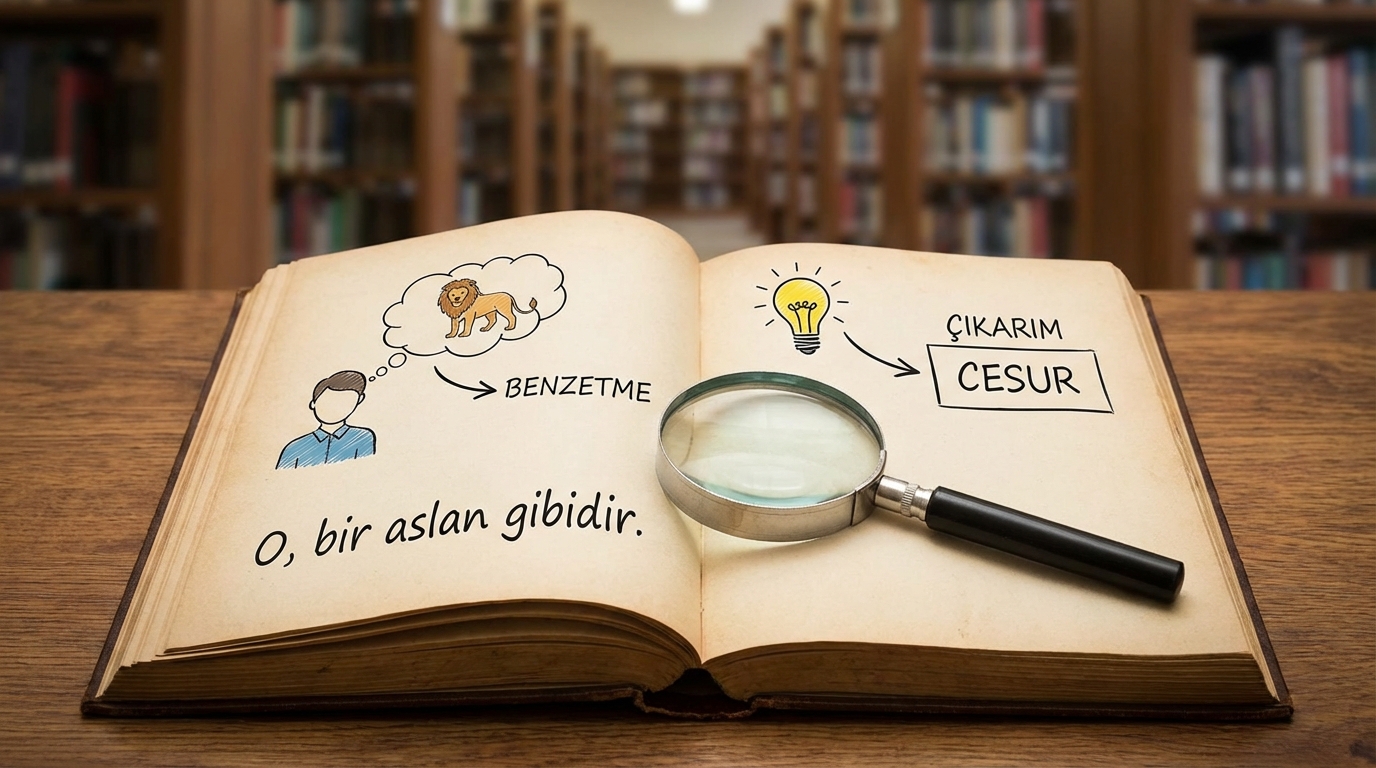 BENZETME
O, bir aslan gibidir.
ÇIKARIM
CESUR